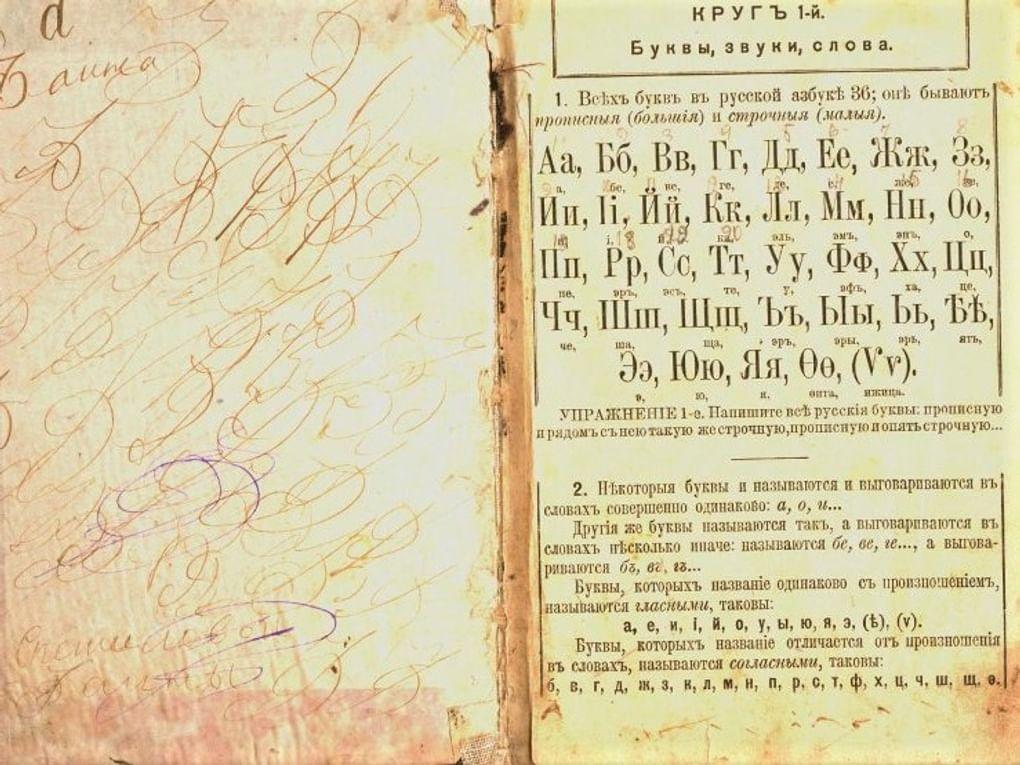 d
КРУГЪ 1-й.
Буквы, звуки, слова.
1. Всѣхъ буквъ въ русской азбукѣ 36; онѣ бываютъ
прописныя (большія) и строчныя (малыя).
Аа, Бб, Вв, Гг, Дд, Ее, Жж, Зз,
а, бе, ве, ге, де, е, же, зе,
Ии, Іі, Йй, Кк, Лл, Мм, Нн, Оо,
і, ка, эль, эмъ, энъ, о,
Пп, Рр, Сс, Тт, Уу, Фф, Хх, Цц,
пе, эръ, эсъ, те, у, эфъ, ха, це,
Чч, Шш, Щщ, Ъъ, Ыы, Ьь, Ѣѣ,
че, ша, ща, эръ, эры, эрь, ять,
Ээ, Юю, Яя, Ѳѳ, (Ѵѵ).
э, ю, я, ѳита, ижица.
УПРАЖНЕНІЕ 1-е. Напишите всѣ русскія буквы: прописную
и рядомъ съ нею такую же строчную, прописную и опять строчную...
2. Нѣкоторыя буквы и называются и выговариваются въ
словахъ совершенно одинаково: а, о, и...
Другія же буквы называются такъ, а выговариваются въ
словахъ нѣсколько иначе: называются бе, ве, ге..., а выгова-
риваются бъ, въ, гъ...
Буквы, которыхъ названіе одинаково съ произношеніемъ,
называются гласными, таковы:
а, е, и, і, й, о, у, ы, ю, я, э, (ѣ), (ѵ).
Буквы, которыхъ названіе отличается отъ произношенія
въ словахъ, называются согласными, таковы:
б, в, г, д, ж, з, к, л, м, н, п, р, с, т, ф, х, ц, ч, ш, щ, ѳ.